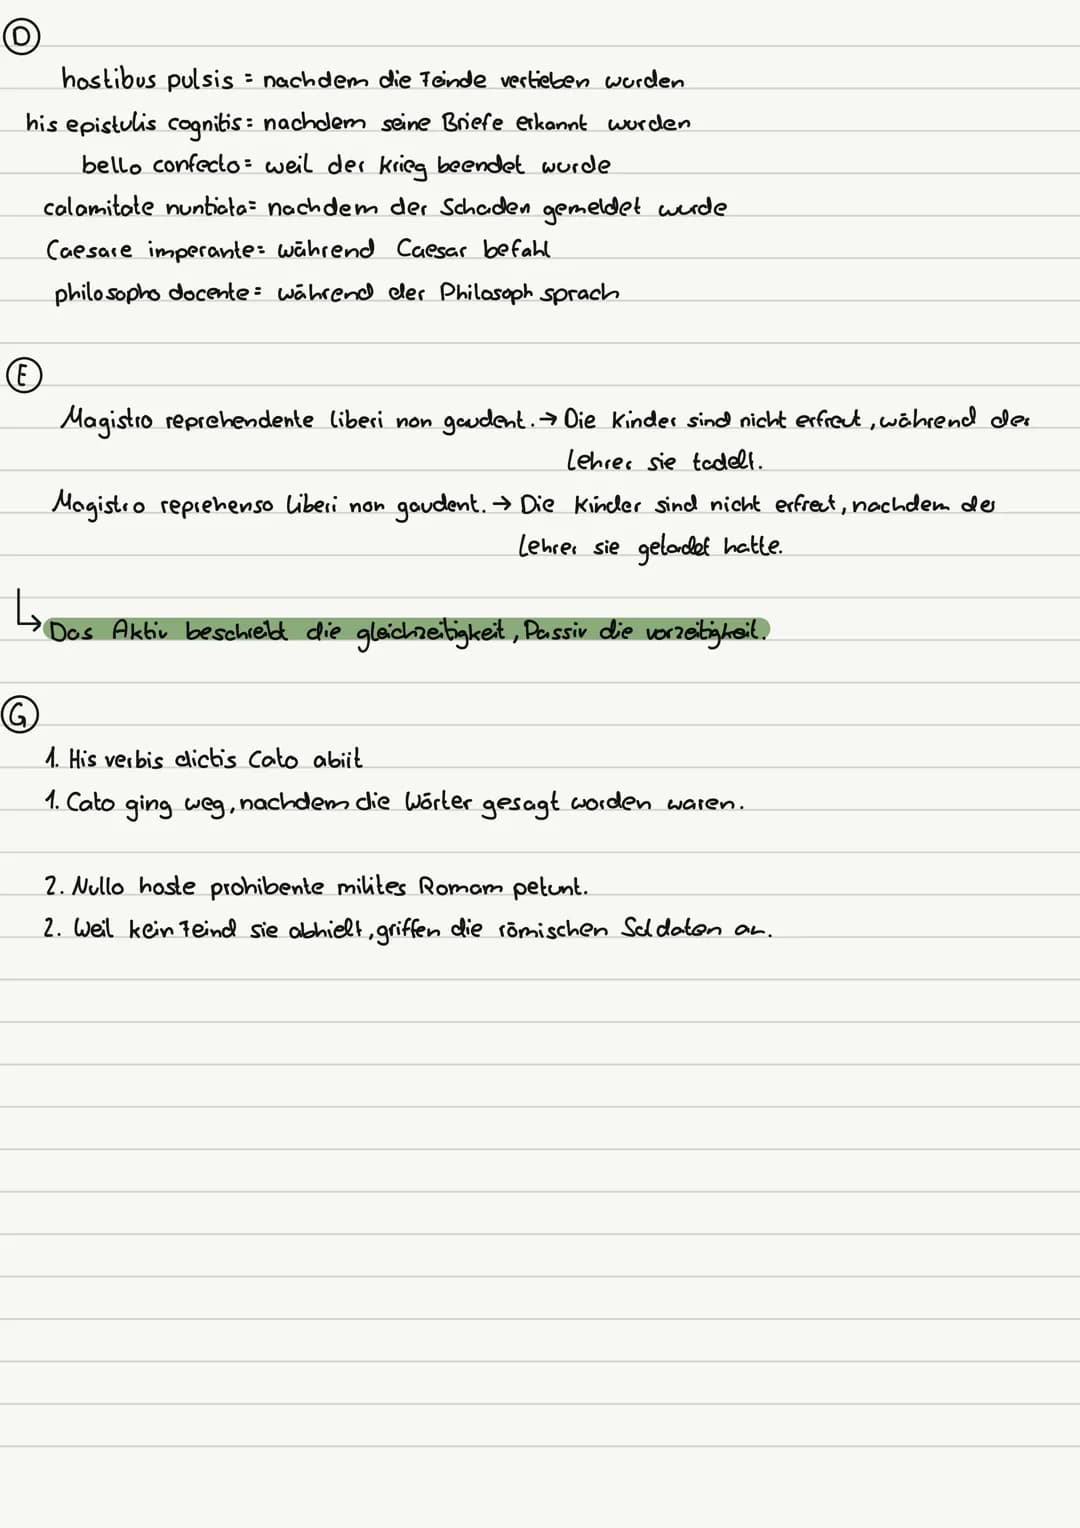 D
hostibus pulsis = nachdem die Feinde vertieben wurden
his epistulis cognitis = nachdem seine Briefe erkannt wurden
bello confecto = weil der Krieg beendet wurde
calamitate nuntiata = nachdem der Schaden gemeldet wurde
Caesare imperante = während Caesar befahl
philosopho docente = während der Philosoph sprach
E
Magistro reprehendente liberi non gaudent. → Die Kinder sind nicht erfreut, während der
Lehrer sie tadelt.
Magistro reprehenso liberi non gaudent. → Die Kinder sind nicht erfreut, nachdem der
Lehrer sie hatte.
↳ Das Aktiv beschreibt die gleichzeitigkeit, Passiv die vorzeitigkeit.
G
1. His verbis dictis Cato abiit
1. Cato ging weg, nachdem die Wörter gesagt worden waren.
2. Nullo hoste prohibente milites Romam petunt.
2. Weil kein Feind sie abhielt, griffen die römischen Soldaten an.